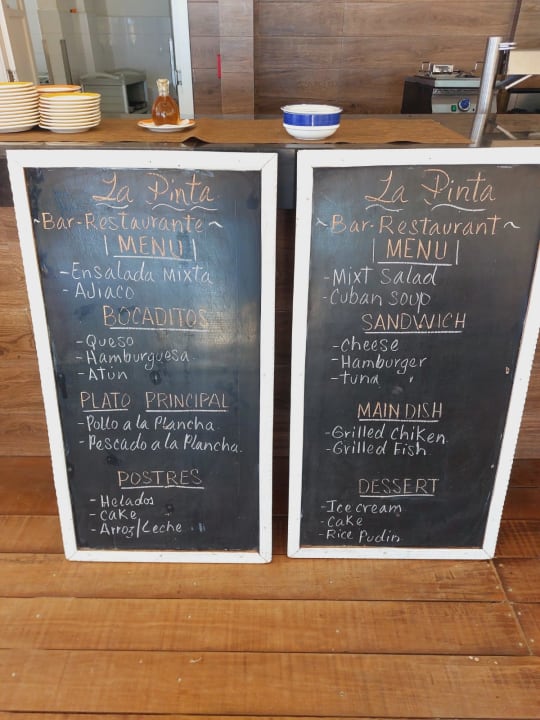 La Pinta
~Bar-Restaurante~
MENU
-Ensalada Mixta
-Ajiaco
BOCADITOS
-Queso
-Hamburguesa
-Atún
PLATO PRINCIPAL
-Pollo a la Plancha
-Pescado a la Plancha.
POSTRES
-Helados
-Cake
-Arroz/Leche
La Pinta
~Bar-Restaurant~
MENU
-Mixt Salad
-Cuban Soup
SANDWICH
-Cheese
-Hamburger
-tuna
MAIN DISH
-Grilled Chiken
-Grilled Fish
DESSERT
-Ice cream
-Cake
-Rice Pudin